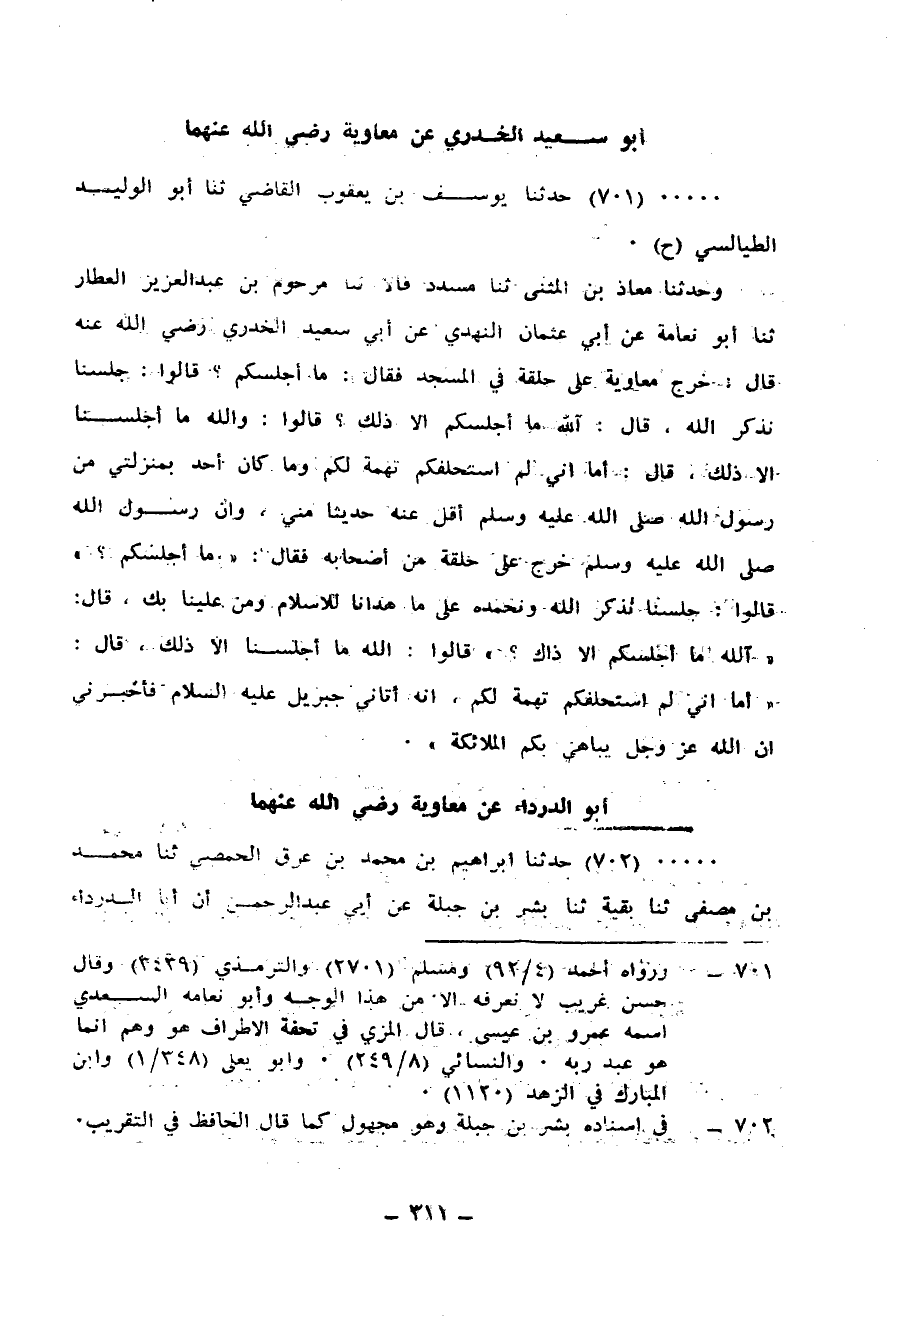 أبو سعيد الخدري عن معاوية رضي الله عنهما
٠٠٠٠٠ (٧٠١) حدثنا يوسف بن يعقوب القاضي ثنا أبو الوليد
الطيالسي (ح) ٠
وحدثنا معاذ بن المثنى ثنا مسدد قالا ثنا مرحوم بن عبدالعزيز العطار
ثنا أبو نعامة عن أبي عثمان النهدي عن أبي سعيد الخدري رضي الله عنه
قال : خرج معاوية على حلقة في المسجد فقال : ما أجلسكم ؟ قالوا : جلسنا
نذكر الله ، قال : آلله ما أجلسكم الا ذلك ؟ قالوا : والله ما أجلسنا
الا ذلك ، قال : أما اني لم استحلفكم تهمة لكم وما كان أحد بمنزلتي من
رسول الله صلى الله عليه وسلم أقل عنه حديثا مني ، وان رسول الله
صلى الله عليه وسلم خرج على حلقة من أصحابه فقال : « ما أجلسكم ؟ »
قالوا : جلسنا نذكر الله ونحمده على ما هدانا للاسلام ومن علينا بك ، قال:
« آلله ما أجلسكم الا ذاك ؟ » قالوا : الله ما أجلسنا الا ذلك ، قال :
« أما اني لم استحلفكم تهمة لكم ، انه أتاني جبريل عليه السلام فأخبرني
ان الله عز وجل يباهي بكم الملائكة » ٠
أبو الدرداء عن معاوية رضي الله عنهما
٠٠٠٠٠ (٧٠٢) حدثنا ابراهيم بن محمد بن عرق الحمصي ثنا محمد
بن مصفى ثنا بقية ثنا بشر بن جبلة عن أبي عبدالرحمن أن أبا الدرداء
٧٠١ – ورواه أحمد (٩٢/٤) ومسلم (٢٧٠١) والترمذي (٣٤٣٩) وقال
حسن غريب لا نعرفه الا من هذا الوجه وأبو نعامه السعدي
اسمه عمرو بن عيسى ، قال المزي في تحفة الاطراف هو وهم انما
هو عبد ربه ٠ والنسائي (٢٤٩/٨) ٠ وابو يعلى (١/٣٤٨) وابن
المبارك في الزهد (١١٢٠) ٠
٧٠٢ – في اسناده بشر بن جبلة وهو مجهول كما قال الحافظ في التقريب٠
– ٣١١ –